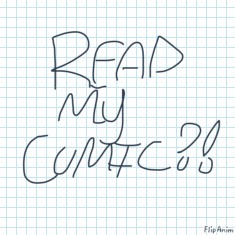 READ
MY
COMIC?!
FlipAnim